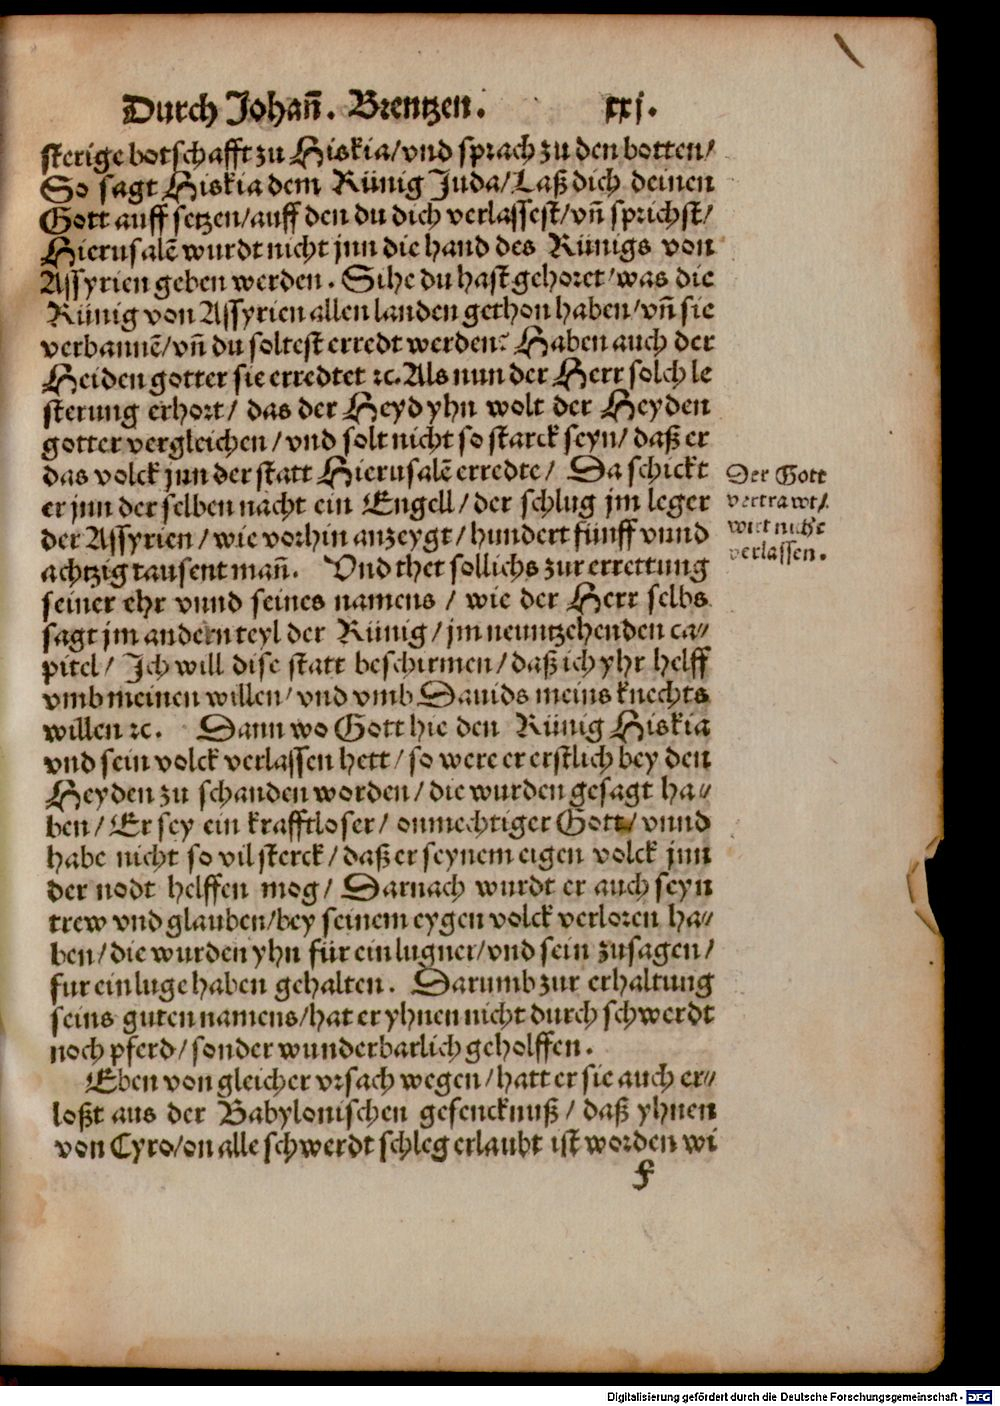 Durch Johañ. Brentzen. xxj.
sterige botschafft zu Hiskia/vnd sprach zu den botten/
So sagt Hiskia dem Künig Juda/Laß dich deinen
Gott auff setzen/auff den du dich verlassest/vñ sprichst/
Hierusalē wurdt nicht jnn die hand des Künigs von
Assyrien geben werden. Sihe du hast gehoret/was die
Künig von Assyrien allen landen gethon haben/vñ sie
verbannē/vñ du soltest erredt werden? Haben auch der
Heiden gotter sie erredtet ꝛc. Als nun der Herr solch le
sterung erhort/ das der Heyd yhn wolt der Heyden
gotter vergleichen/vnd solt nicht so starck seyn/daß er
das volck jnn der statt Hierusalē erredte/ Da schickt
er jnn der selben nacht ein Engell/der schlug jm leger
der Assyrien/wie vorhin anzeygt/hundert fünff vnnd
achtzig tausent mañ. Vnd thet sollichs zur errettung
seiner ehr vnnd seines namens / wie der Herr selbs
sagt jm andern teyl der Künig/jm neuntzehenden ca⸗
pitel/ Ich will dise statt beschirmen/daß ich yhr helff
vmb meinen willen/vnd vmb Dauids meins knechts
willen ꝛc. Dann wo Gott hie den Künig Hiskia
vnd sein volck verlassen hett/so were er erstlich bey den
Heyden zu schanden worden/die wurden gesagt ha⸗
ben/Er sey ein krafftloser/onmechtiger Gott/vnnd
habe nicht so vil sterck/daß er seynem eigen volck jnn
der nodt helffen mog/ Darnach wurdt er auch seyn
trew vnd glauben/bey seinem eygen volck verloren ha⸗
ben/die wurden yhn für ein lugner/vnd sein zusagen/
fur ein luge haben gehalten. Darumb zur erhaltung
seins guten namens/hat er yhnen nicht durch schwerdt
noch pferd/sonder wunderbarlich geholffen.
Eben von gleicher vrsach wegen/hatt er sie auch er⸗
loßt aus der Babylonischen gefencknuß/daß yhnen
von Cyro/on alle schwerdt schleg erlaubt ist worden wi
f
Der Gott
vertrawt/
wirt nicht
verlassen.
Digitalisierung gefördert durch die Deutsche Forschungsgemeinschaft - DFG